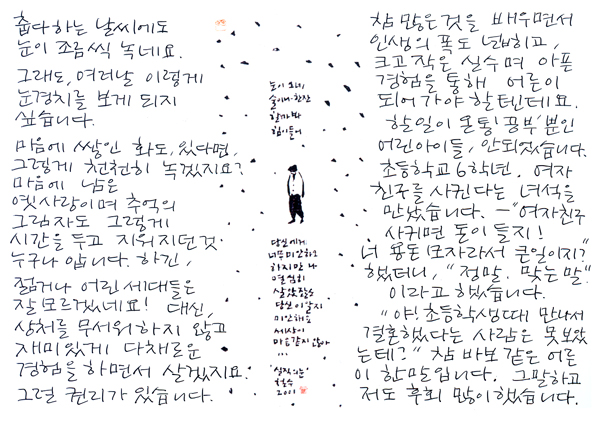 춥다하는 날씨에도
눈이 쪼름씩 녹네요.
그래도, 여러날 이렇게
눈경치를 보게 되지
싶습니다.
마음에 쌓인 화도, 있다면,
그렇게 천천히 녹겠지요?
마음에 남은
옛사랑이며 추억의
그림자도 그렇게
시간을 두고 지워지던것
누구나 압니다. 하긴,
젊거나 어린 세대들은
잘 모르겠네요! 대신,
상처를 무서워하지 않고
재미있게 다채로운
경험을 하면서 살겠지요.
그럴 권리가 있습니다.
눈이 오네
술이나 한잔
할까봐
힘이들어
당신에게
너무 미안하고
하지만 나
열심히
살았잖소
당신이 알지
미안해요
세상이
마음같지 않아
...
철수
2011
참 많은것을 배우면서
인생의 폭도 넓히고,
크고작은 실수며 아픈
경험을 통해 어른이
되어가야 할텐데요.
할일이 온통 '공부'뿐인
어린아이들, 안되었습니다.
초등학교 6학년, 여자
친구를 사귄다는 녀석을
만났습니다. — "여자친구
사귀면 돈이 들지!
너 용돈 모자라서 큰일이지?"
했더니, "정말, 맞는 말"
이라고 했습니다.
"야! 초등학생때 만나서
결혼했다는 사람은 못보았
는데?" 참 바보같은 어른
이 한 말입니다. 그말하고
저도 후회 많이했습니다.